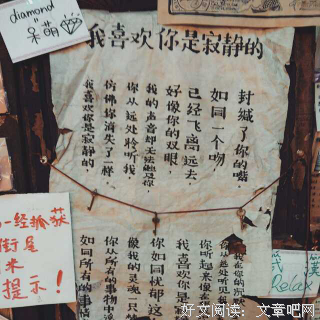 diamond
呆萌
我喜欢你是寂静的
我喜欢你是寂静的，
仿佛你消失了一样，
你从远处聆听我，
我的声音却无法触及你，
好像你的双眼，
已经飞离远去，
如同一个吻
封缄了你的嘴
如同所有的事
你从所有的事物中
像我的灵魂一只
你如同忧郁这
我喜欢你是
你听起来像
一经抓获
街尾
米
提示！
Relax
好文阅读：文章吧网